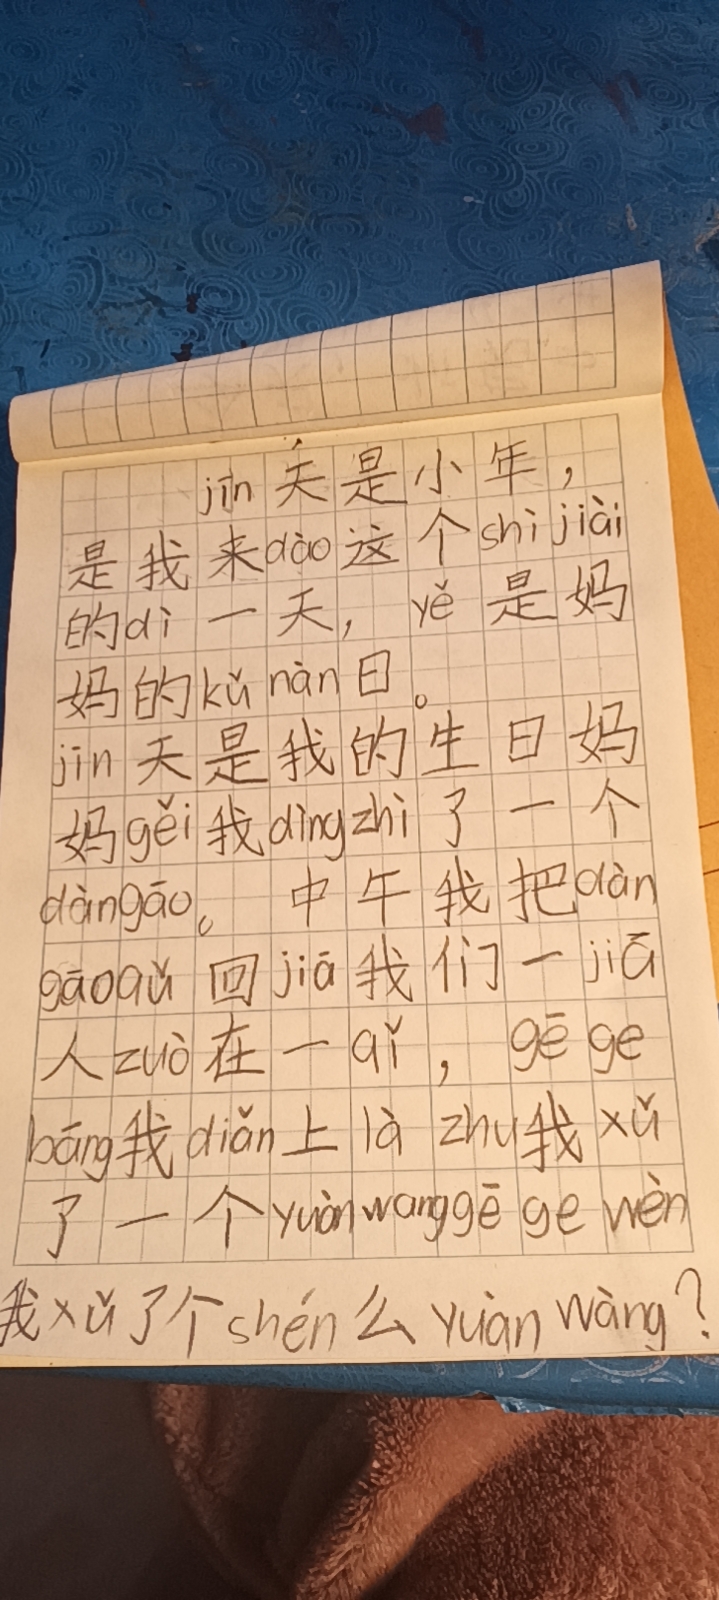 jīn天是小年，
是我来dào这个shì jiài
的dì一天，yě是妈
妈的kǔ nàn日。
jīn天是我的生日妈
妈gěi我dìng zhì了一个
dàn gāo。中午我把dàn
gāo qǔ回jiā我们一jiā
人zuò在一qǐ，gē ge
bāng我diǎn上là zhu我xǔ
了一个yuàn wang gē ge wèn
我xǔ了个shén么yuàn wàng？